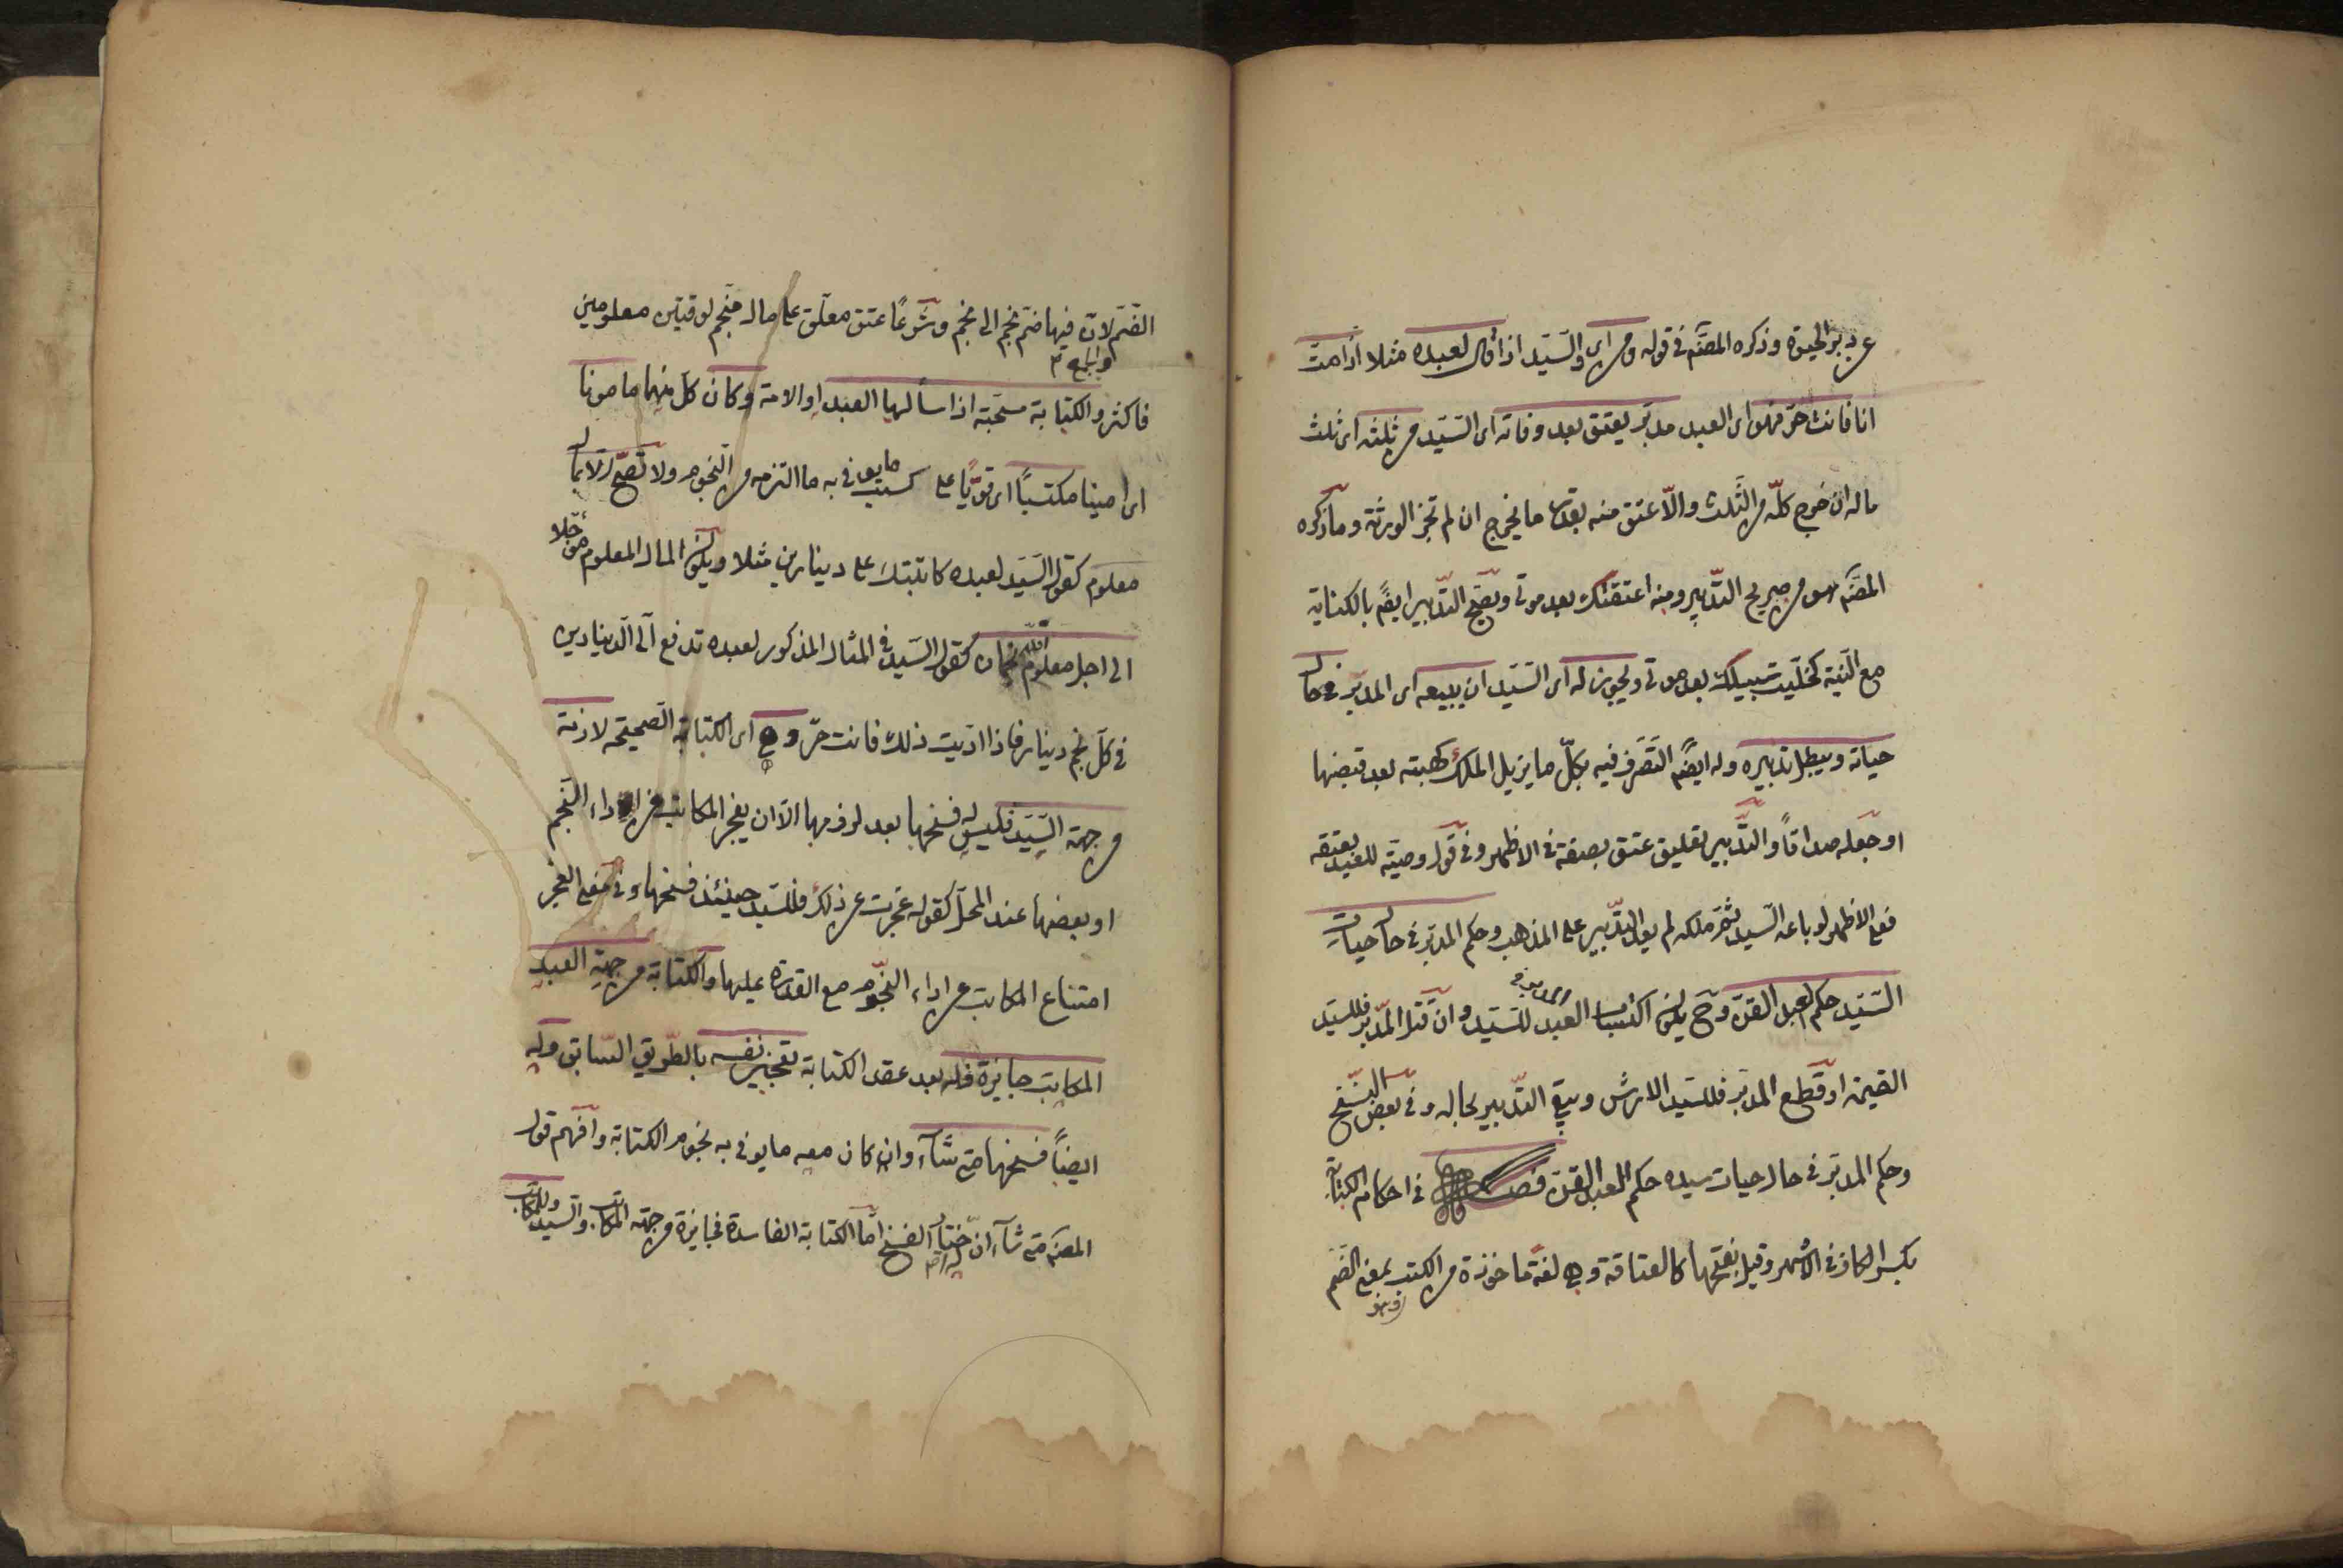 عن دبر الحيوة وذكره المصنّف في قوله ومن اى والسّيد اذا قال لعبده مثلا اذا مت
انا فانت حرّ فهو اى العبد مدبّر يعتق بعد وفاته اى السّيّد من ثلثه اى ثلث
ماله ان خرج كلّه من الثّلث والّا عتق منه بقدر ما يخرج ان لم تجز الورثة وما ذكره
المصنّف هو من صريح التّدبير ومنه اعتقتك بعد موتى ويصحّ التّدبير ايضًا بالكناية
مع النّية كخلّيت سبيلك بعد موتى ويجوز له اى السّيّد ان يبيعه اى المدبّر في حال
حياته ويبطل تدبيره وله ايضًا التّصرّف فيه بكلّ ما يزيل الملك كهبته بعد قبضها
او جعله صداقًا والتّدبير تعليق عتق بصفة في الاظهر وفي قول وصيّة للعبد بعتقه
فعلى الاظهر لو باعه السّيد ثمّ ملكه لم يعد التّدبير على المذهب وحكم المدبّر في حال حيات
السّيّد حكم العبد القنّ وح يكون اكتساب العبد للسّيّد وان قتل المدّبر فللسّيّد
القيمة او قطع المدبّر فللسّيد الارش ويبقى التّدبير بحاله وفي بعض النّسخ
وحكم المدبّر في حال حيات سيده حكم العبد القنّ فصل في احكام الكتابة
بكسر الكاف في الاشهر وقيل بفتحها كالعتاقة وهي لغة ماخوذة من الكتب بمعنى الضّم
الضّم لانّ فيها ضمّ نجم الى نجم وشرعًا عتق معلّق على مال منجّم لوقتين معلومين
فاكثر والكتابة مستحبّة اذا سألها العبد او الامة وكان كلّ منهما مامونا
اى امينا مكتسبًا اى قويًّا على كسب ما يوفي به ما التزمه من النّجوم ولا تصحّ الّا بمال
معلوم كقول السّيّد لعبده كاتبتك على دينارين مثلا ويكون المال المعلوم مؤجّلا
الى اجل معلوم اقلّه نجمان كقول السّيّد في المثال المذكور لعبده تدفع الى الدّينارين
في كلّ نجم دينار فاذا ادّيت ذلك فانت حرّ وهي اى الكتابة الصّحيحة لازمة
من جهة السّيّد فليس له فسخها بعد لزومها الّا ان يعجز المكاتب عن اداء النّجم
او بعضها عند المحلّ كقوله عجزت عن ذلك فللسّيد حينئذ فسخها وفي معنى العجز
امتناع المكاتب عن اداء النّجوم مع القدرة عليها والكتابة من جهة العبد
المكاتب جايزة فله بعد عقد الكتابة تعجيز نفسه بالطّريق السّابق وله
ايضًا فسخها متى شآء وان كان معه ما يوفي به نجوم الكتابة وافهم قول
المصنّف متى شآء انّ له اختيار الفسخ امّا الكتابة الفاسدة فجايزة من جهة المكاتب والسّيّد وللمكاتب